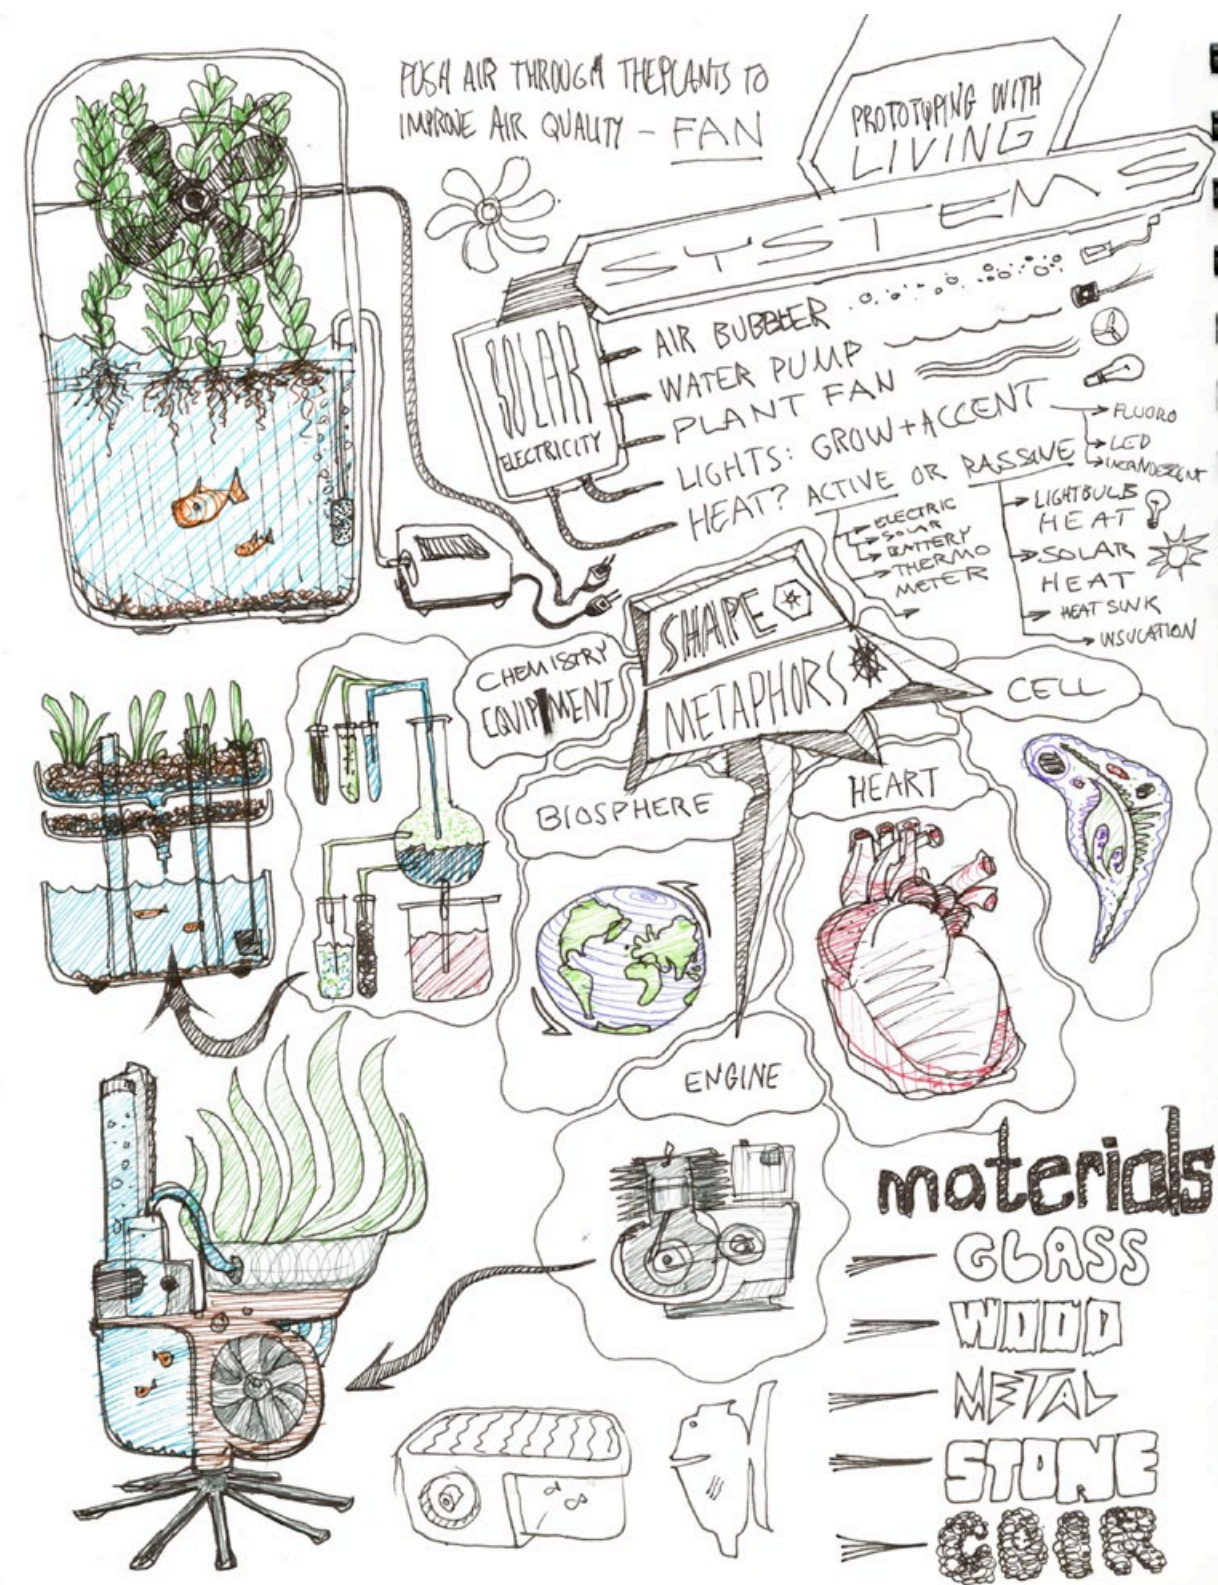 PUSH AIR THROUGH THE PLANTS TO
IMPROVE AIR QUALITY - FAN
PROTOTYPING WITH
LIVING
SYSTEMS
SOLAR
ELECTRICITY
AIR BUBBLER
WATER PUMP
PLANT FAN
LIGHTS: GROW + ACCENT
FLUORO
LED
INCANDESCENT
HEAT? ACTIVE OR PASSIVE
ELECTRIC
SOLAR
BATTERY
THERMO
METER
LIGHTBULB
HEAT
SOLAR
HEAT
HEAT SINK
INSULATION
SHAPE
METAPHORS
CHEMISTRY
EQUIPMENT
CELL
BIOSPHERE
HEART
ENGINE
materials
GLASS
WOOD
METAL
STONE
COIR